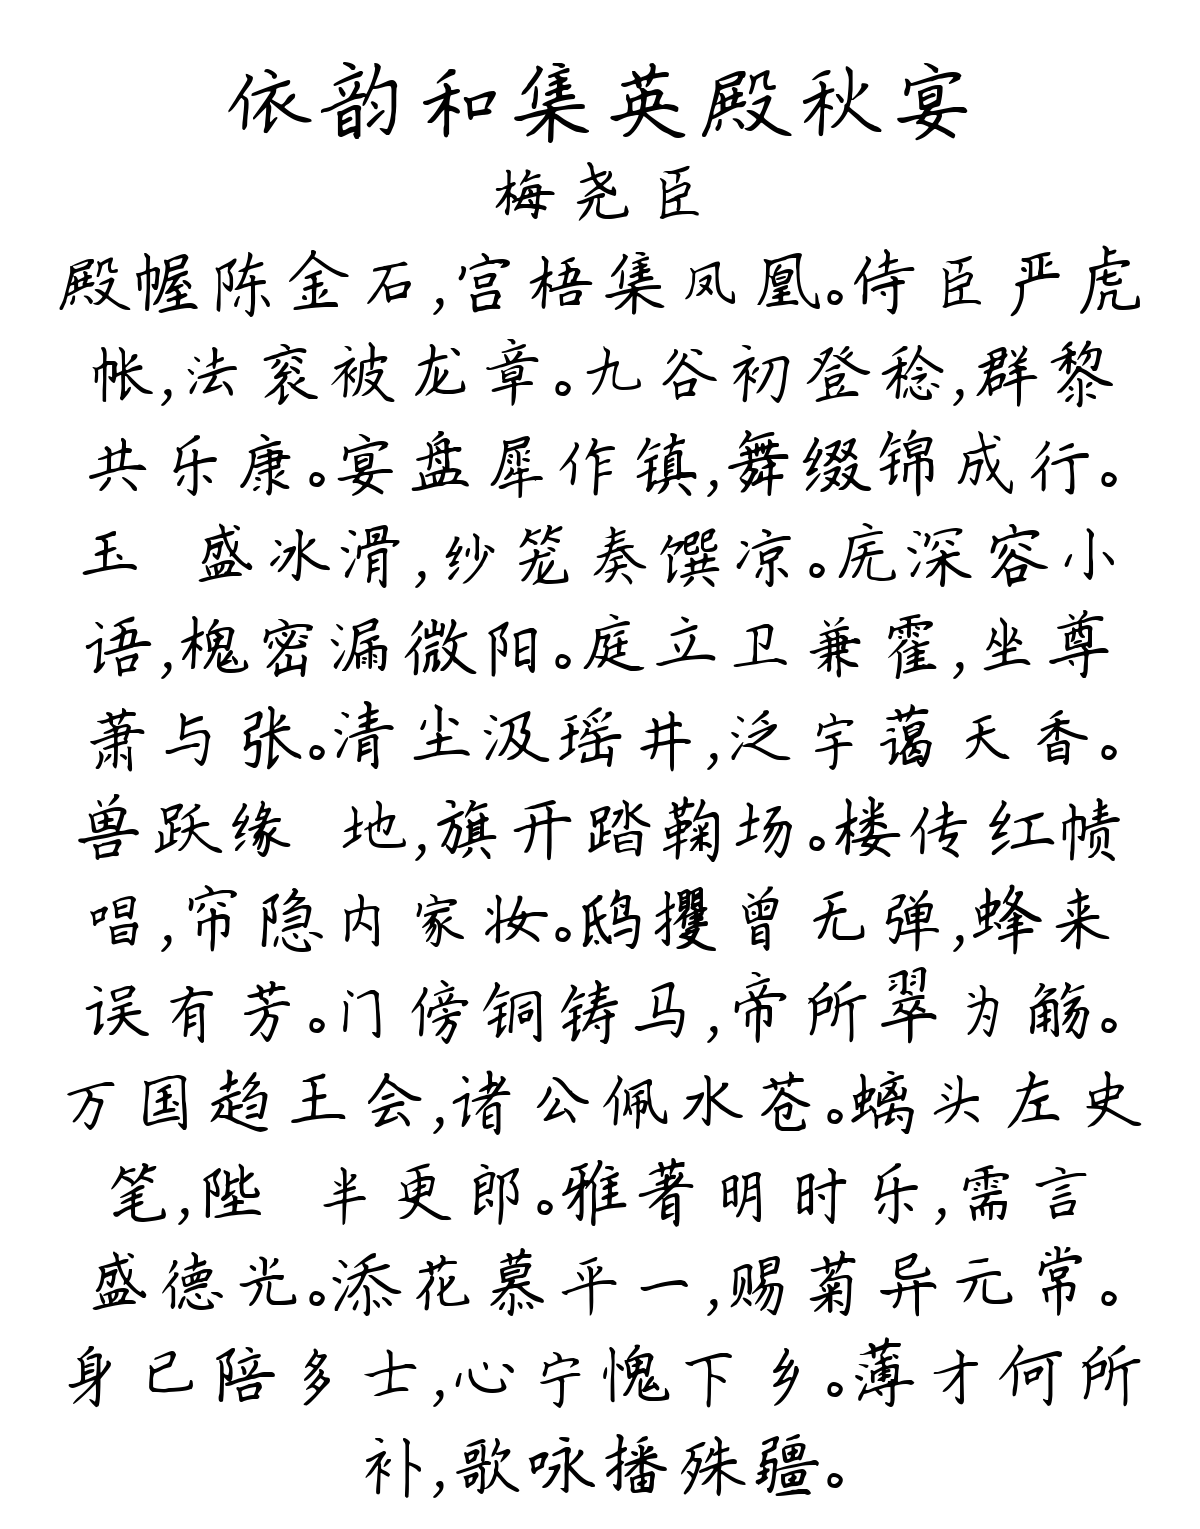 依韵和集英殿秋宴
梅尧臣
殿幄陈金石,宫梧集凤凰。侍臣严虎
帐,法衮被龙章。九谷初登稔,群黎
共乐康。宴盘犀作镇,舞缀锦成行。
玉 盛冰滑,纱笼奏馔凉。庑深容小
语,槐密漏微阳。庭立卫兼霍,坐尊
萧与张。清尘汲瑶井,泛宇蔼天香。
兽跃缘 地,旗开踏鞠场。楼传红帻
唱,帘隐内家妆。鸱攫曾无弹,蜂来
误有芳。门傍铜铸马,帝所翠为觞。
万国趋王会,诸公佩水苍。螭头左史
笔,陛 半更郎。雅著明时乐,需言
盛德光。添花慕平一,赐菊异元常。
身已陪多士,心宁愧下乡。薄才何所
补,歌咏播殊疆。